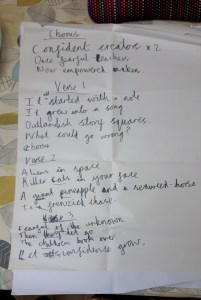 Chorus
Confident creators x 2
Once fearful teachers
Now empowered makers
Verse 1
It started with a
It grew into a song
Outlandish story squares.
What could go wrong?
Chorus
Verse 2
Aliens in space
Killer cats in your face
A giant pineapple and a seaweed-horse
In a frenzied chase.
Verse 3
Fearful of the unknown
Then they let go
The children took over
Let confidence grow.